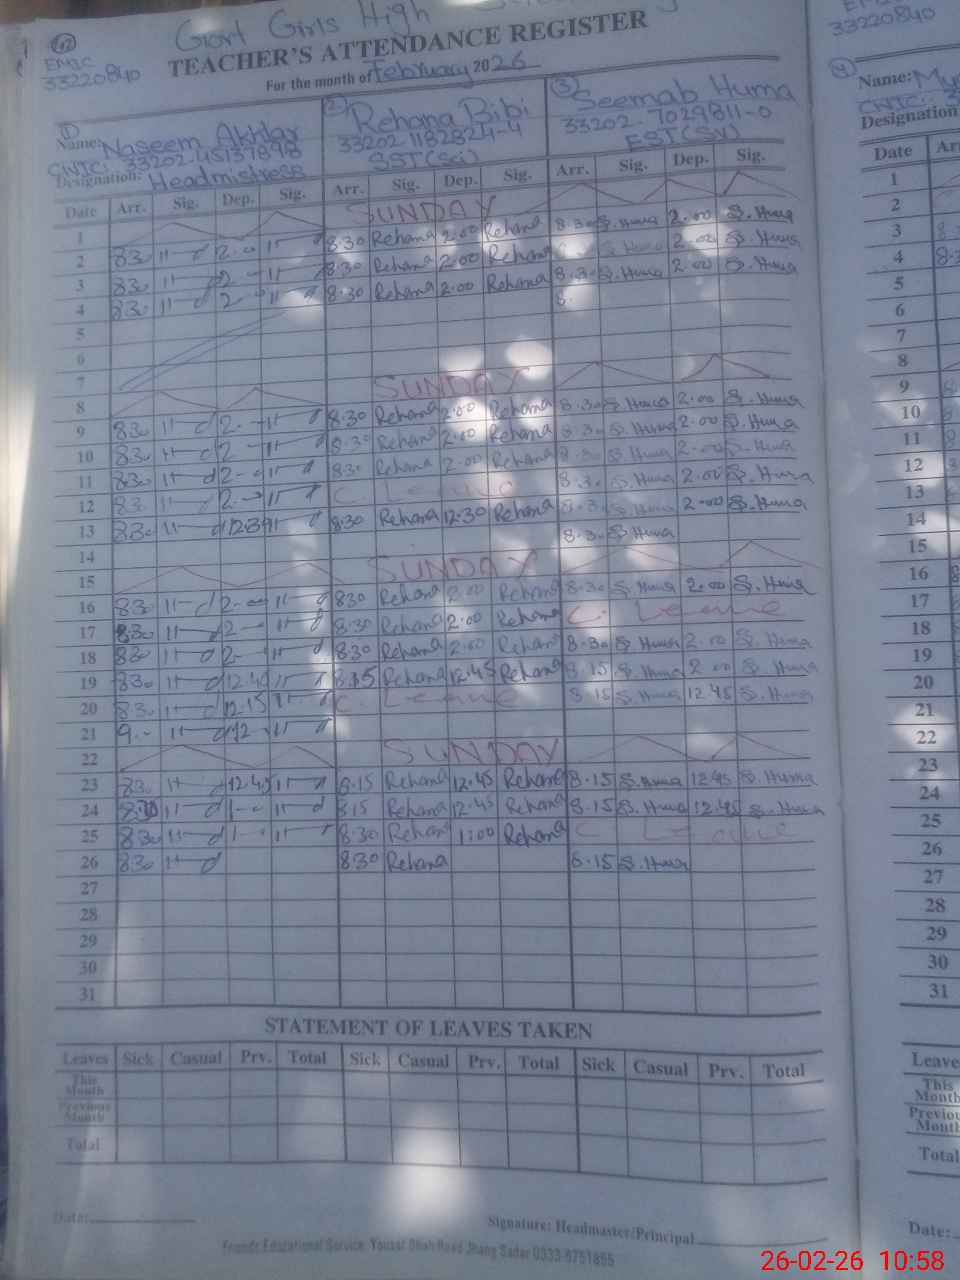 Govt Girls High
TEACHER'S ATTENDANCE REGISTER
EMIS
33220840
For the month of February 2026
① Name: Naseem Akhtar ② Rehana Bibi ③ Seemab Huma
CNIC: 33202-45137898 33202 1182324-4 33202-7029811-0
Designation: Headmistress SST(Sci) EST(SV)
Date Arr. Sig. Dep. Sig. Arr. Sig. Dep. Sig. Arr. Sig. Dep. Sig.
1 SUNDAY
2 830 2-00 8:30 Rehana 2:00 Rehana 8.30 S.Huma 2.00 S.Huma
3 830 2- 8:30 Rehana 2:00 Rehana S.Huma 2.00 S.Huma
4 830 2- 8:30 Rehana 2:00 Rehana 8.30 S.Huma 2.00 S.Huma
5 8.
6
7
8 SUNDAY
9 830 2- 8:30 Rehana 2:00 Rehana 8.30 S.Huma 2.00 S.Huma
10 830 2- 8:30 Rehana 2:00 Rehana 8.30 S.Huma 2.00 S.Huma
11 830 2- 830 Rehana 2:00 Rehana 8.30 S.Huma 2.00 S.Huma
12 830 2- C. Leave 8.30 S.Huma 2.00 S.Huma
13 830 12:39 8:30 Rehana 12:30 Rehana 8.30 S.Huma 2.00 S.Huma
14 8.30 S.Huma
15 SUNDAY
16 830 2-00 830 Rehana 2:00 Rehana 8.30 S.Huma 2.00 S.Huma
17 830 2- 8:30 Rehana 2:00 Rehana C. Leave
18 830 2- 8:30 Rehana 2:00 Rehana 8.30 S.Huma 2.00 S.Huma
19 830 12.40 8:15 Rehana 12.45 Rehana 8.15 S.Huma 2.00 S.Huma
20 830 12.15 C. Leave 8.15 S.Huma 12.45 S.Huma
21 9.- 12-
22 SUNDAY
23 830 12.45 8.15 Rehana 12.45 Rehana 8.15 S.Huma 12.45 S.Huma
24 830 1-0 8.15 Rehana 12.45 Rehana 8.15 S.Huma 12.45 S.Huma
25 830 1- 8:30 Rehana 1:00 Rehana C Leave
26 830 8:30 Rehana 8.15 S.Huma
27
28
29
30
31
STATEMENT OF LEAVES TAKEN
Leaves Sick Casual Prv. Total Sick Casual Prv. Total Sick Casual Prv. Total
This Month
Previous Month
Total
Date: Signature: Headmaster/Principal
Friends Educational Service, Yousaf Shah Road Jhang Sadar 0333-6751855
33220840
④ Name:
CNIC:
Designation
Date
1
2
3
4
5
6
7
8
9
10
11
12
13
14
15
16
17
18
19
20
21
22
23
24
25
26
27
28
29
30
31
Leave
This Month
Total
Date:
26-02-26 10:58